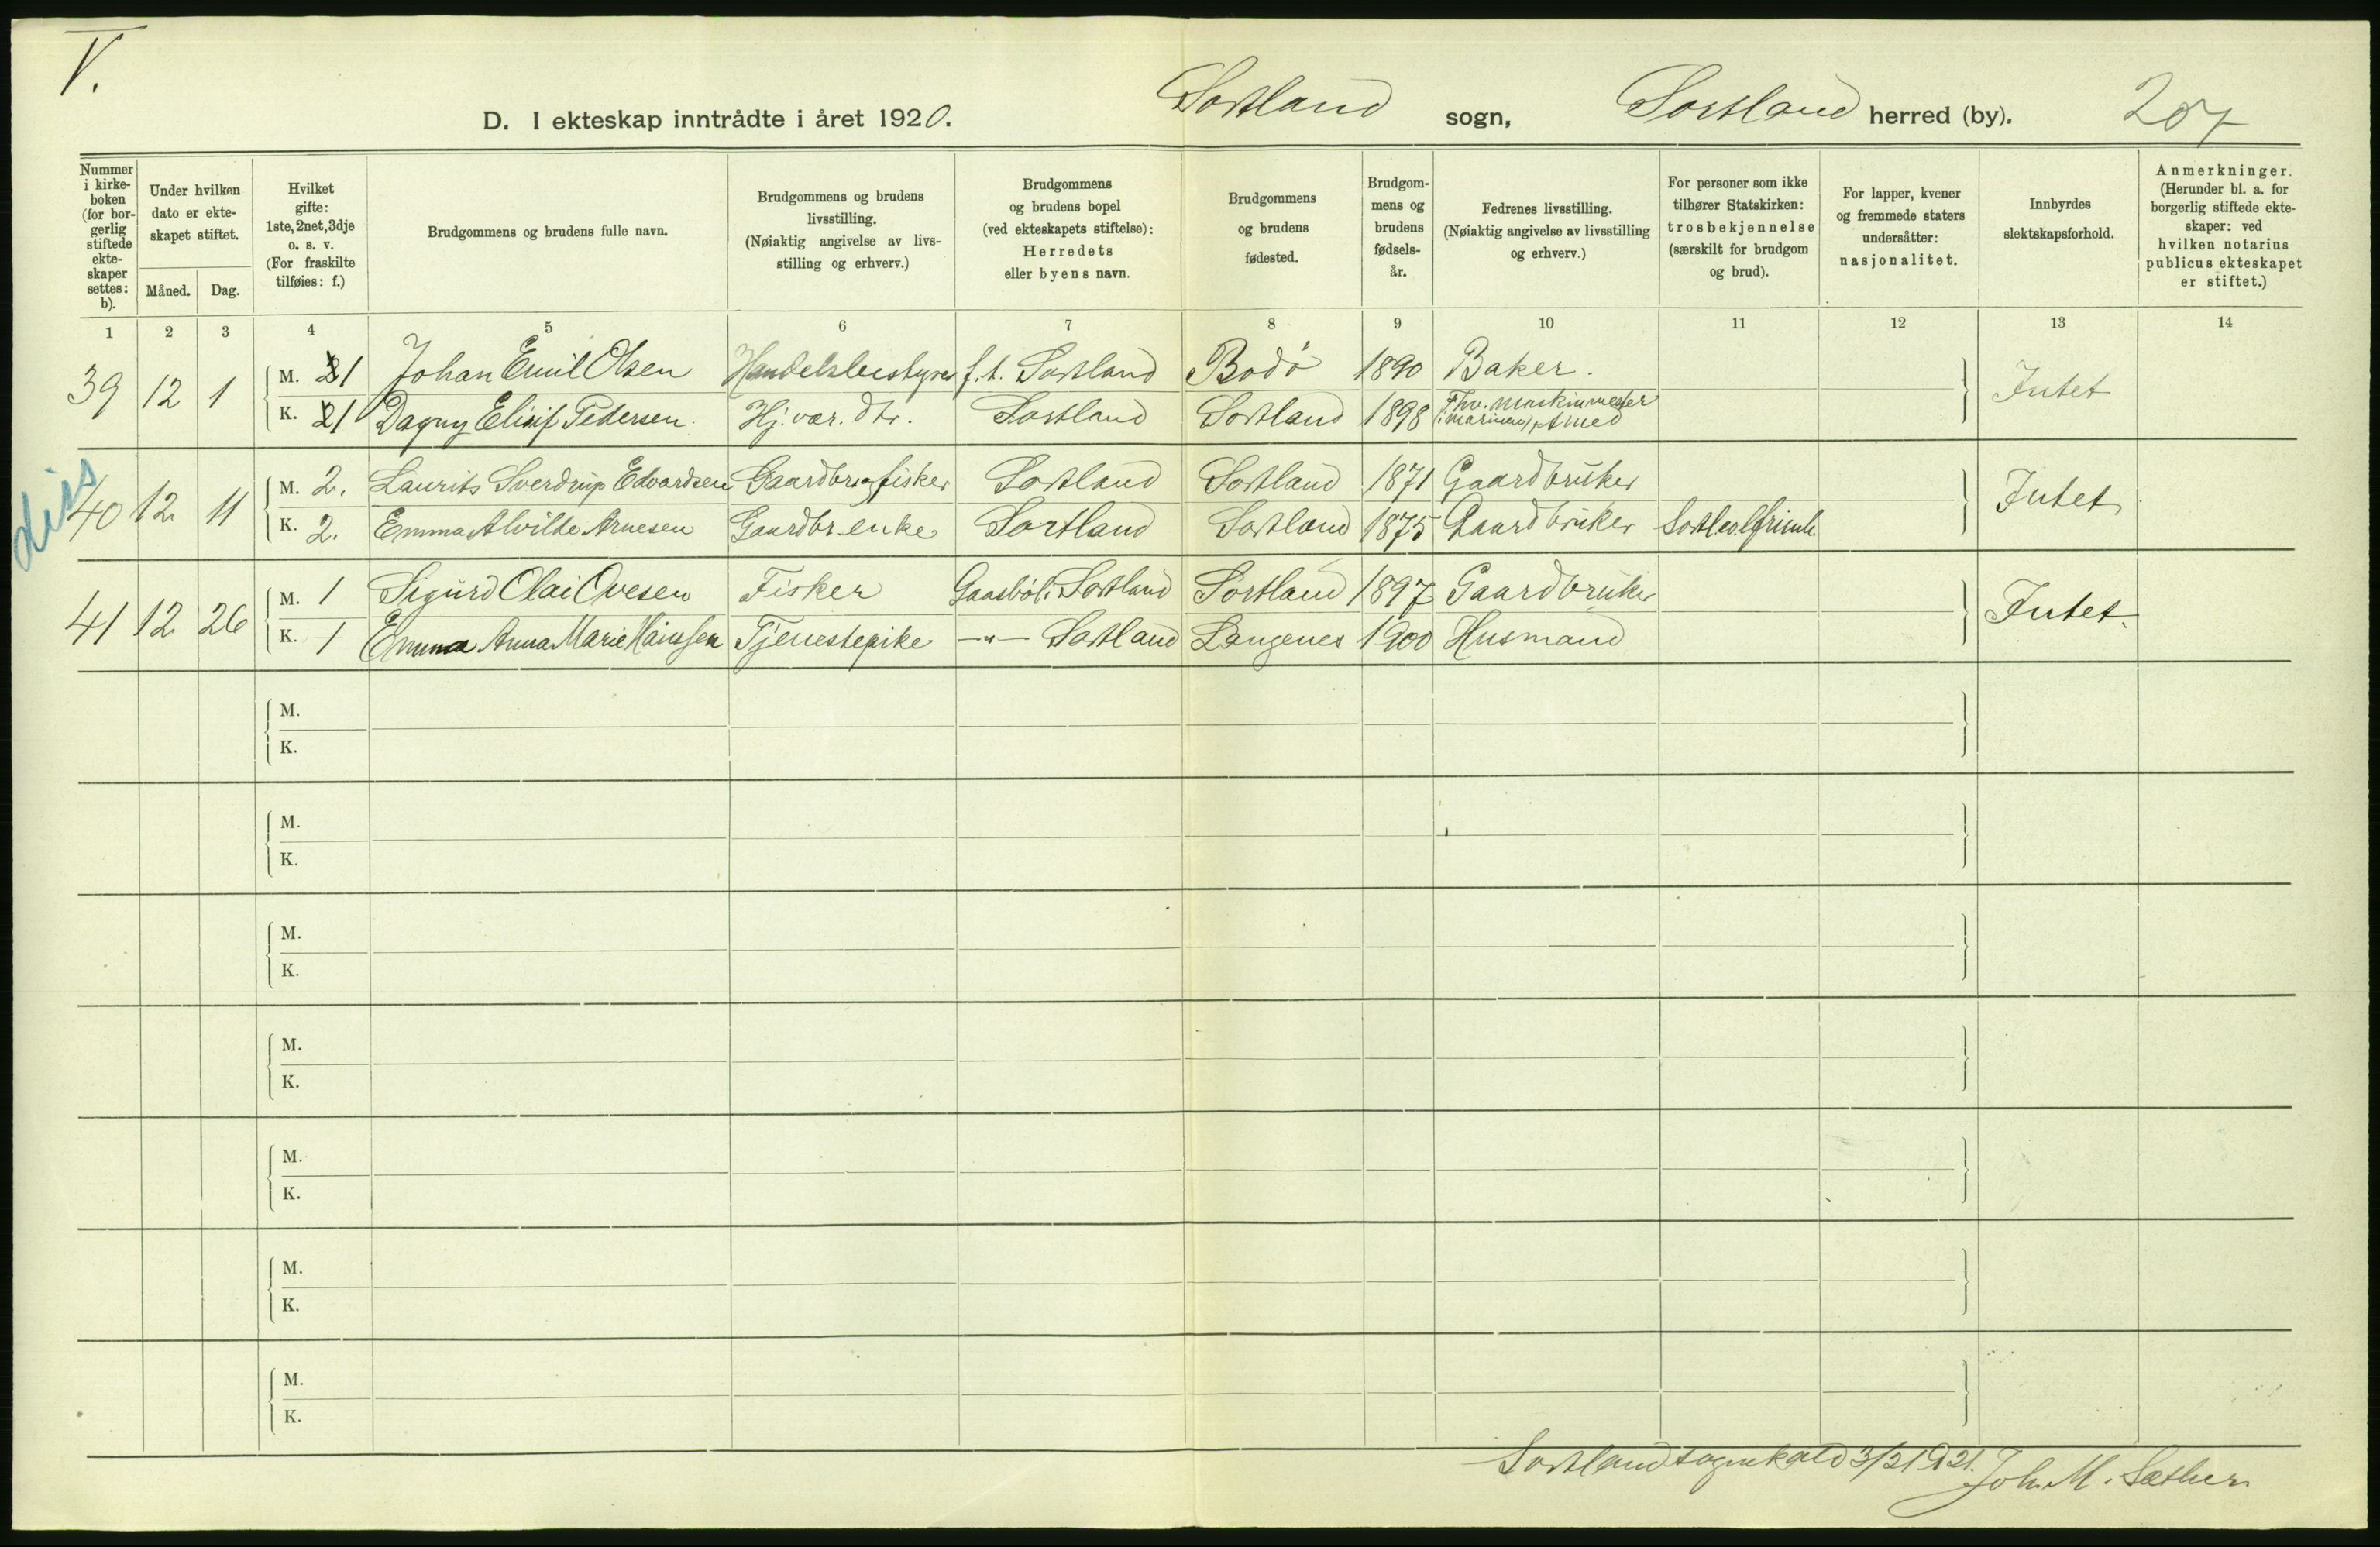 V.
D. I ekteskap inntrådte i året 1920. Sortland sogn, Sortland herred (by). 207
Nummer i kirkeboken (for borgerlig stiftede ekteskaper settes: b).
Under hvilken dato er ekteskapet stiftet.
Måned. Dag.
Hvilket gifte: 1ste, 2net, 3dje o. s. v. (For fraskilte tilføies: f.)
Brudgommens og brudens fulle navn.
Brudgommens og brudens livsstilling. (Nøiaktig angivelse av livsstilling og erhverv.)
Brudgommens og brudens bopel (ved ekteskapets stiftelse): Herredets eller byens navn.
Brudgommens og brudens fødested.
Brudgommens og brudens fødselsår.
Fedrenes livsstilling. (Nøiaktig angivelse av livsstilling og erhverv.)
For personer som ikke tilhører Statskirken: trosbekjennelse (særskilt for brudgom og brud).
For lapper, kvener og fremmede staters undersåtter: nasjonalitet.
Innbyrdes slektskapsforhold.
Anmerkninger. (Herunder bl. a. for borgerlig stiftede ekteskaper: ved hvilken notarius publicus ekteskapet er stiftet.)
1 2 3 4 5 6 7 8 9 10 11 12 13 14
39 12 1 M. 1 Johan Emil Olsen Handelsbestyrer f.t. Sortland Bodö 1890 Baker. Intet
K. 1 Dagny Elisif Pedersen. Hj. vær. dtr. Sortland Sortland 1898 Fhv. maskinmester i marinen, smed
diss
40 12 11 M. 2. Laurits Sverdrup Edvardsen Gaardbr og fisker Sortland Sortland 1871 Gaardbruker Intet
K. 2. Emma Alvilde Arnesen Gaardbr. enke Sortland Sortland 1875 Gaardbruker
41 12 26 M. 1 Sigurd Olai Ovesen Fisker Gaasböl i Sortland Sortland 1897 Gaardbruker Intet.
K. 1 Emma Anna Marie Hainsen Tjenestepike —"— Sortland Langenes 1900 Husmand
M.
K.
M.
K.
M.
K.
M.
K.
M.
K.
M.
K.
M.
K.
Sortland sognekald 3/2 1921. Joh. M. Sæther